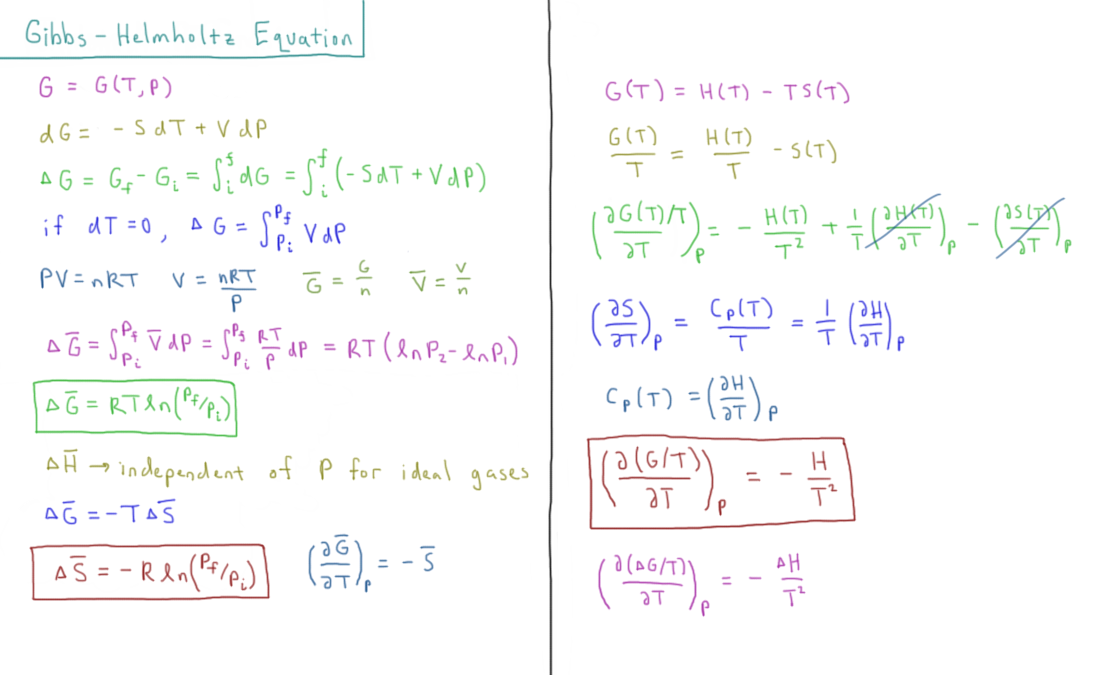 Gibbs - Helmholtz Equation
G = G(T,P)
dG = - S dT + V dP
ΔG = G_f - G_i = ∫_i^f dG = ∫_i^f (-SdT + VdP)
if dT=0, ΔG = ∫_{P_i}^{P_f} V dP
PV = nRT V = nRT/P G̅ = G/n V̅ = V/n
ΔG̅ = ∫_{P_i}^{P_f} V̅ dP = ∫_{P_i}^{P_f} RT/P dP = RT (ln P_2 - ln P_1)
ΔG̅ = RT ln(P_f/P_i)
ΔH̅ → independent of P for ideal gases
ΔG̅ = -TΔS̅
ΔS̅ = -R ln(P_f/P_i) (∂G̅/∂T)_P = - S̅
G(T) = H(T) - TS(T)
G(T)/T = H(T)/T - S(T)
(∂G(T)/T/∂T)_P = - H(T)/T² + 1/T (∂H(T)/∂T)_P - (∂S(T)/∂T)_P
(∂S/∂T)_P = C_P(T)/T = 1/T (∂H/∂T)_P
C_P(T) = (∂H/∂T)_P
(∂(G/T)/∂T)_P = - H/T²
(∂(ΔG/T)/∂T)_P = - ΔH/T²